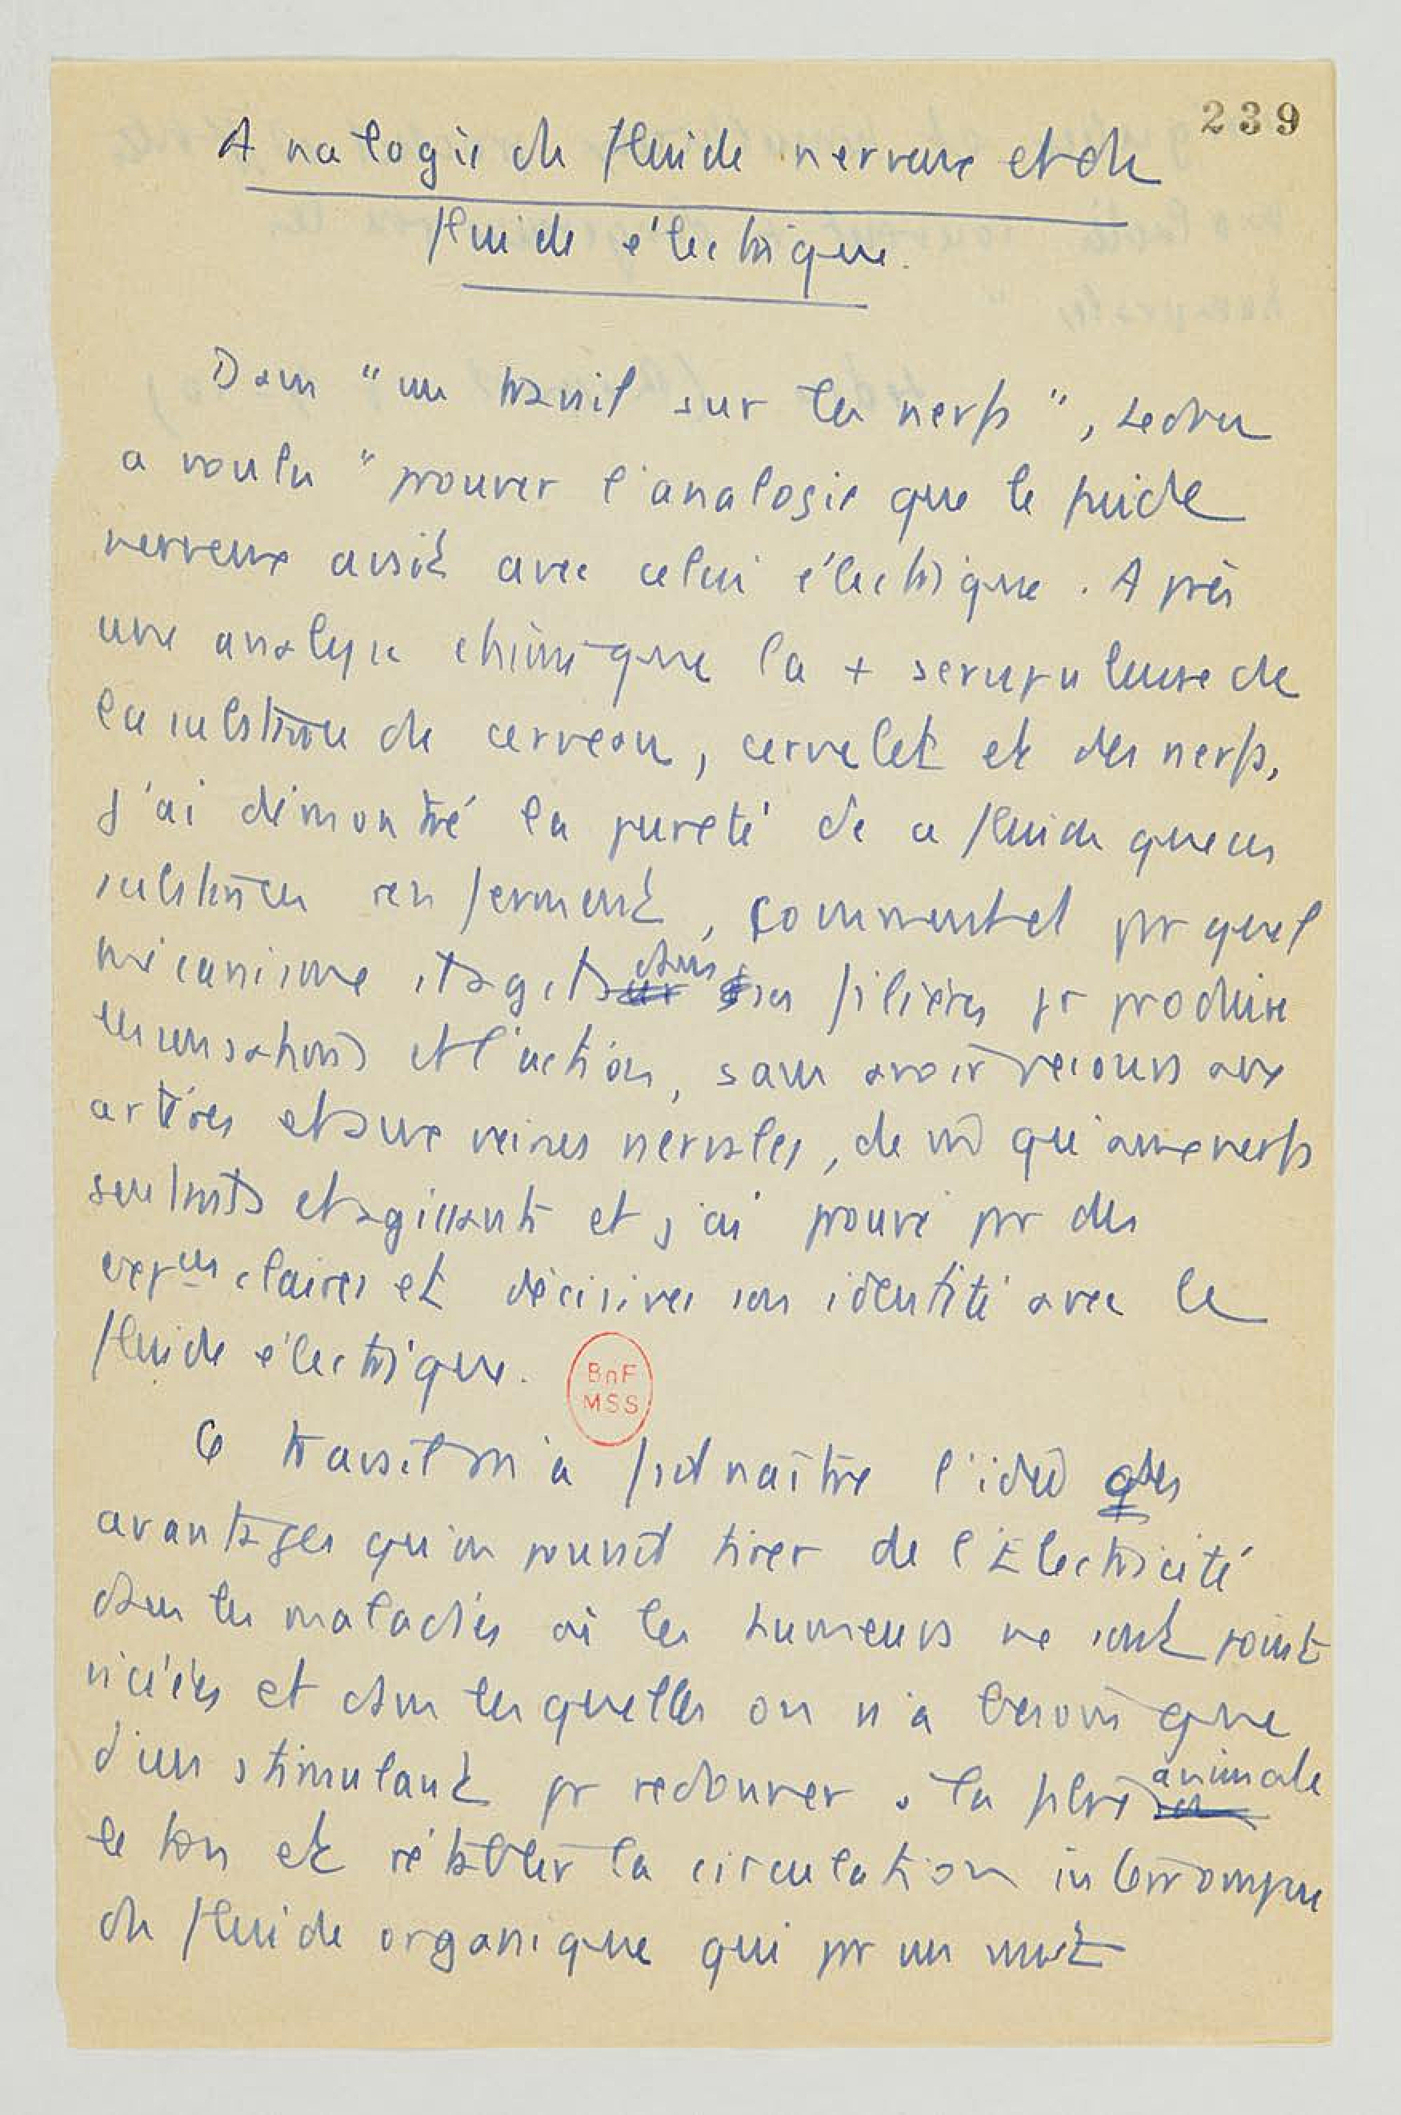 239
Analogie du fluide nerveux et du
fluide électrique.
Dans "un travail sur les nerfs", Ledru
a voulu "prouver l'analogie que le fluide
nerveux avait avec celui électrique. Après
une analyse chimique la + scrupuleuse de
la substance du cerveau, cervelet et des nerfs,
j'ai démontré la pureté de ce fluide que ces
substances renferment, comment et pr quel
mécanisme il agit dans ses filières pr produire
les sensations et l'action, sans avoir recours aux
artères et aux veines nervales, de mê qu'aux nerfs
sentants et agissants et j'ai prouvé pr des
expces claires et décisives son identité avec le
fluide électrique.
BnF
MSS
Ce travail m'a fait naître l'idée des
avantages qu'on pouvait tirer de l'Electricité
dans les maladies où les humeurs ne sont point
viciées et dans lesquelles on n'a besoin que
d'un stimulant pr redonner à la fibre animale
le ton et rétablir la circulation interrompue
du fluide organique qui pr un